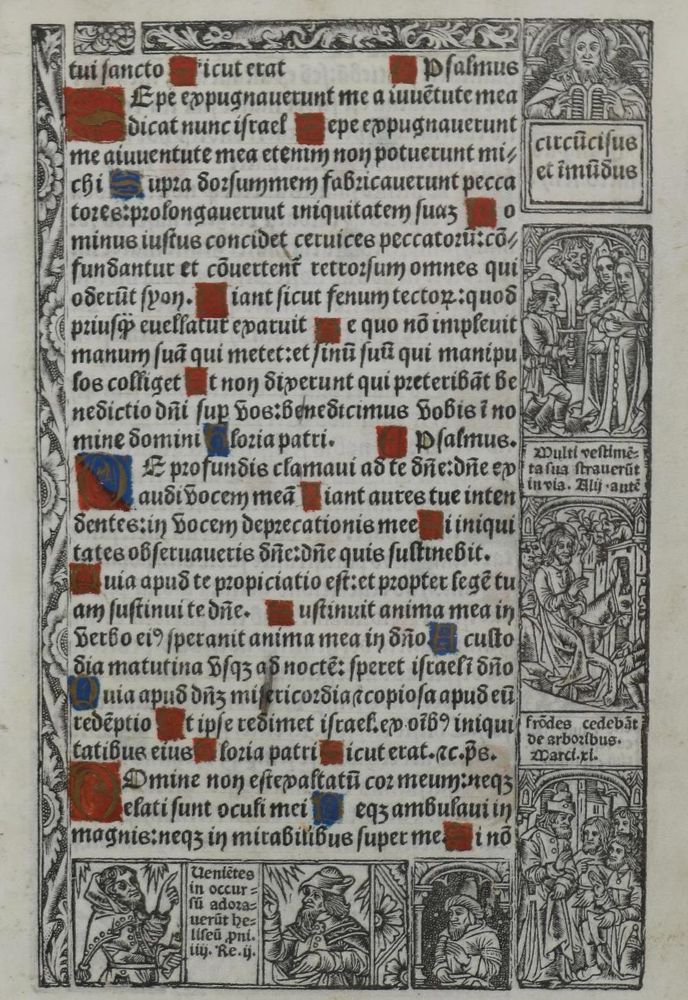 tui sancto Sicut erat Psalmus
Sepe expugnauerunt me a iuuētute mea
dicat nunc israel Sepe expugnauerunt
me aiuuentute mea etenim non potuerunt mi/
chi Supra dorsummem fabricauerunt pecca
tores:prolongaveruut iniquitatem suaꝫ Do
minus iustus concidet ceruices peccatorū:cō/
fundantur et cōuertent᷑ retrorsum omnes qui
oderūt syon. Fiant sicut fenum tectoꝝ:quod
priusꝙ̄ euellatur exaruit De quo nō impleuit
manum suā qui metet:et sinū suū qui manipu
los colliget Et non dixerunt qui preteribāt be
nedictio dn̄i sup vos:benedicimus vobis ī no
mine domini Gloria patri. Psalmus.
DE profundis clamaui ad te dn̄e:dn̄e ex
audi vocem meā Fiant aures tue inten
dentes:in vocem deprecationis mee Si iniqui
tates obseruaueris dn̄e:dn̄e quis sustinebit.
Quia apud te propiciatio est:et propter legē tu
am sustinui te dn̄e. Sustinuit anima mea in
verbo eiꝰ speranit anima mea in dn̄o A custo
dia matutina vsqꝫ ad noctē: speret israel ī dn̄o
Quia apud dn̄ꝫ misericordia ⁊copiosa apud eū
redēptio Et ipse redimet israel.ex oībꝰ iniqui
tatibus eius Gloria patri Sicut erat.⁊c.p̄s.
Domine non est exaltatū cor meum:neqꝫ
elati sunt oculi mei Neqꝫ ambulaui in
magnis:neqꝫ in mirabilibus super me Si nō
circūcisus
et īmūdus
Multi vestimē-
ta sua strauerūt
in via. Alij autē
frōdes cedebāt
de arboribus.
Marci.xi.
Uenīetes
in occur=
sū adora-
uerūt he-
liseū pni.
iiij. Re.ij.